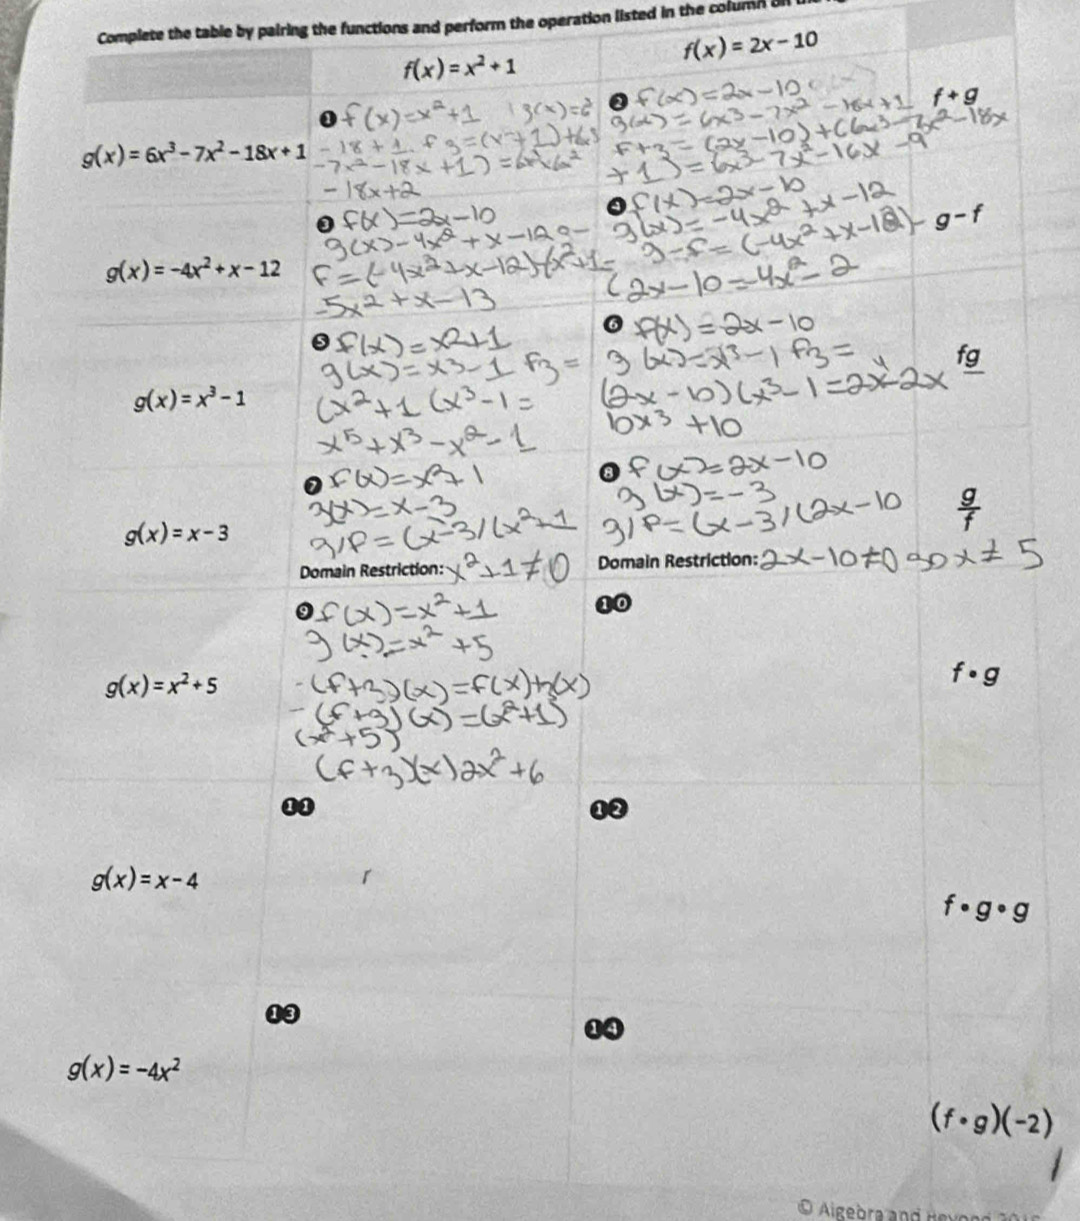 Complete the table by pairing the functions and perform the operation listed in the column on
f(x) = x² + 1
f(x) = 2x - 10
g(x) = 6x³ - 7x² - 18x + 1
❶ f(x) = x² + 1 g(x) = 6
-18 + 1 f g = (x² + 1) + 6x³
-7x² - 18x + 1) =
-18x + 2
❷ f(x) = 2x - 10
g(x) = 6x³ - 7x² - 18x + 1
f + g = (2x - 10) + (6x³ - 7x² - 18x
+ 1) = 6x³ - 7x² - 16x - 9
f + g
g(x) = -4x² + x - 12
❸ f(x) = 2x - 10
g(x) - 4x² + x - 12 g -
f = (-4x² + x - 12) - (x² + 1 =
-5x² + x - 13
❹ f(x) = 2x - 10
g(x) = -4x² + x - 12
g - f = (-4x² + x - 12) -
(2x - 10 = -4x² - 2
g - f
g(x) = x³ - 1
❺ f(x) = x² + 1
g(x) = x³ - 1 fg =
(x² + 1 (x³ - 1 =
x⁵ + x³ - x² - 1
❻ f(x) = 2x - 10
g(x) = x³ - 1 fg =
(2x - 10) (x³ - 1 = 2x⁴ - 2x
10x³ + 10
fg
g(x) = x - 3
❼ f(x) = x² + 1
g(x) = x - 3
g/f = (x - 3 / (x² + 1
Domain Restriction: x² + 1 ≠ 0
❽ f(x) = 2x - 10
g(x) = - 3
g/f = (x - 3 / (2x - 10
Domain Restriction: 2x - 10 ≠ 0 so x ≠ 5
g
f
g(x) = x² + 5
❾ f(x) = x² + 1
g(x) = x² + 5
- (f + g)(x) = f(x) + g(x)
- (f + g)(x) = (x² + 1)
(x² + 5)
(f + g)(x) 2x² + 6
❿
f • g
g(x) = x - 4
⓫
⓬
f • g • g
g(x) = -4x²
⓭
⓮
(f • g)(-2)
© Algebra and Beyond